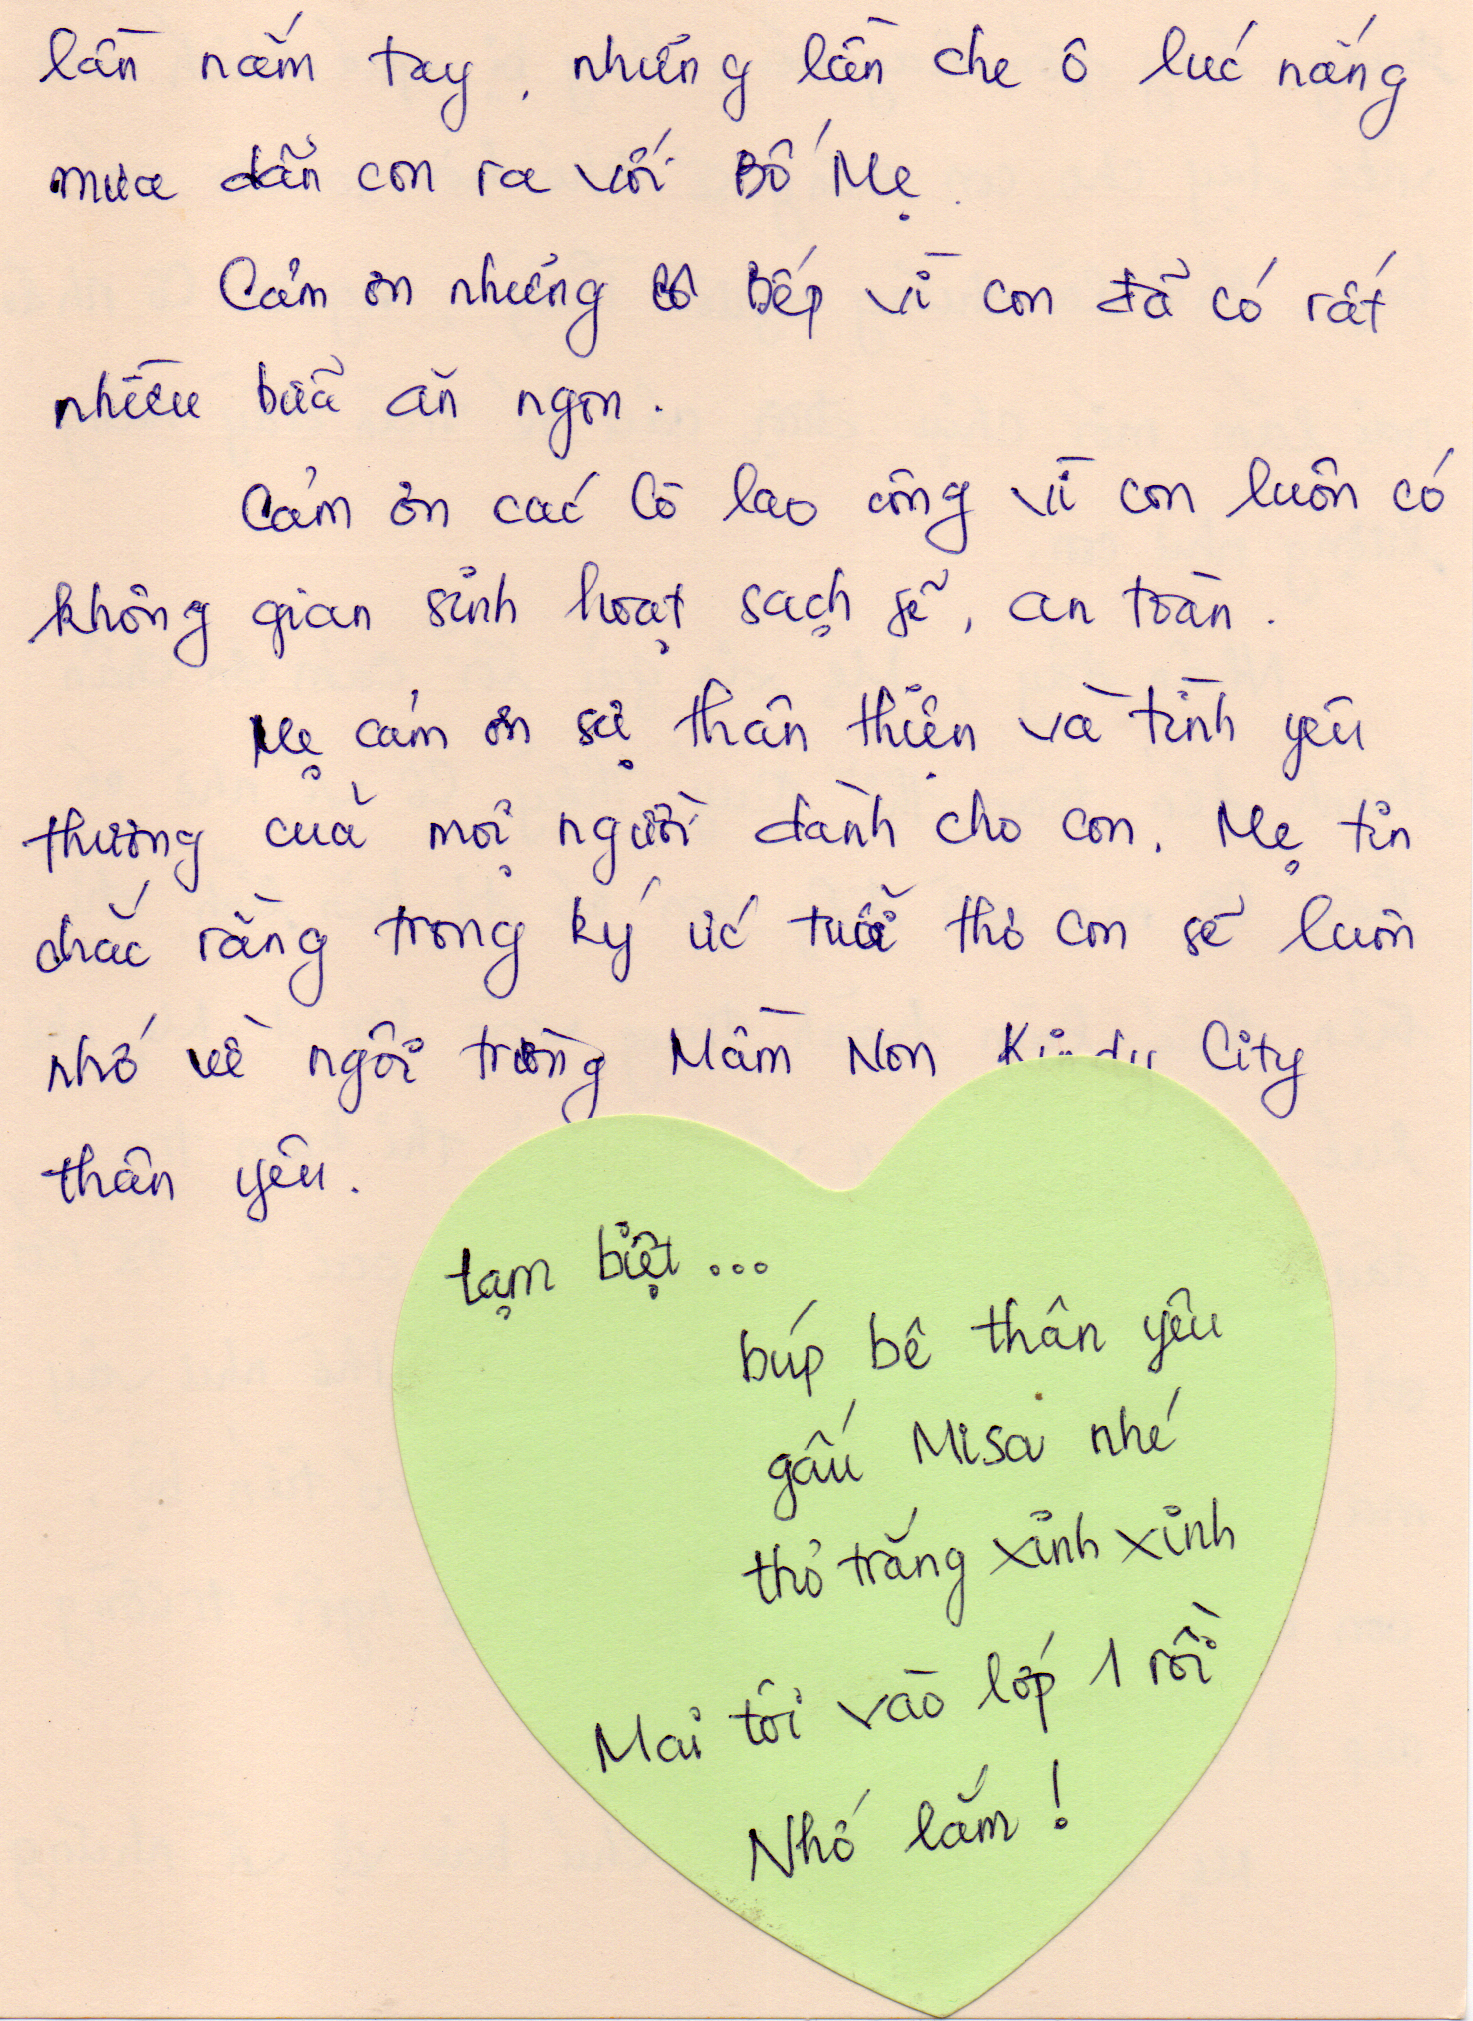 lần nắm tay, những lần che ô lúc nắng
mưa dẫn con ra với Bố Mẹ.
Cảm ơn những cô Bếp vì con đã có rất
nhiều bữa ăn ngon.
Cảm ơn các Cô lao công vì con luôn có
không gian sinh hoạt sạch sẽ, an toàn.
Mẹ cảm ơn sự thân thiện và tình yêu
thương của mọi người dành cho con. Mẹ tin
chắc rằng trong ký ức tuổi thơ con sẽ luôn
nhớ về ngôi trường Mầm Non City
thân yêu.
tạm biệt...
búp bê thân yêu
gấu Misa nhé
thỏ trắng xinh xinh
Mai tôi vào lớp 1 rồi
Nhớ lắm!